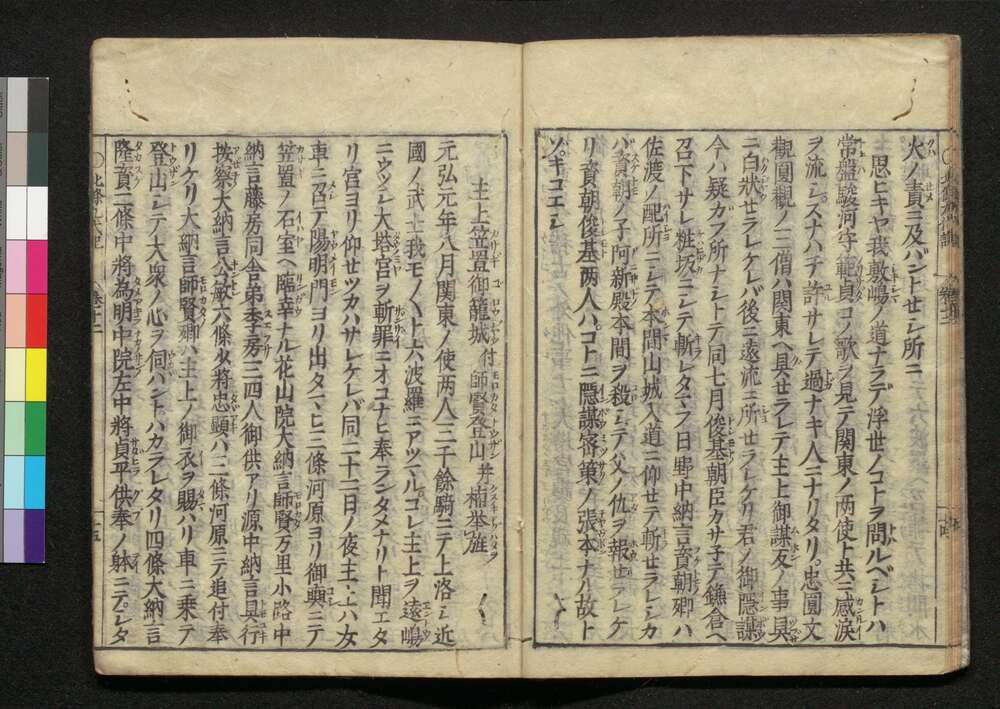 火ノ責ニ及バントセシ所ニ
思ヒキヤ我敷嶋ノ道ナラデ浮世ノコトヲ問ルベシトハ
常盤駿河守範貞コノ歌ヲ見テ関東ノ両使ト共ニ感涙
ヲ流シスナハチ許サレテ過ナキ人ニナリタリ忠圓文
觀圓觀ノ三僧ハ関東ヘ具セラレテ主上御謀反ノ事具
ニ白状セラレケレバ後ニ遠流ニ所セラレケリ君ノ御隠謀
今ハ疑ガフ所ナシトテ同七月俊基朝臣カサ子テ鎌倉ヘ
召下サレ粧坂ニシテ斬レタマフ日野中納言資朝卿ハ
佐渡ノ配所ニシテ本間山城入道ニ仰セテ斬セラレシカ
バ資朝ノ子阿新殿本間ヲ殺シテ父ノ仇ヲ報ゼラレケ
リ資朝俊基两人ハコトニ隠謀密策ノ張本ナル故ト
ゾキコエシ
主上笠置御籠城付師賢登山并楠挙旌
元弘元年八月関東ノ使两人三千餘騎ニテ上洛シ近
國ノ武士我モ〳〵ト六波羅ニアツマルコレ主上ヲ遠嶋
ニウツシ大塔宮ヲ斬罪ニオコナヒ奉ランタメナリト聞エタ
リ宮ヨリ仰セツカハサレケレバ同二十二日ノ夜主上ハ女
車ニ召テ陽明門ヨリ出タマヒ三條河原ヨリ御輿ニテ
笠置ノ石室ヘ臨幸ナル花山院大納言師賢万里小路中
納言藤房同舎弟季房三四人御供アリ源中納言具行
按察大納言公敏六條少将忠顕ハ二條河原ニテ追付奉
リケリ大納言師賢卿ハ主上ノ御衣ヲ賜ハリ車ニ乗テ
登山シテ大衆ノ心ヲ伺ハントハカラレタリ四條大納言
隆資二條中将為明中院左中将貞平供奉ノ躰ニテシタ